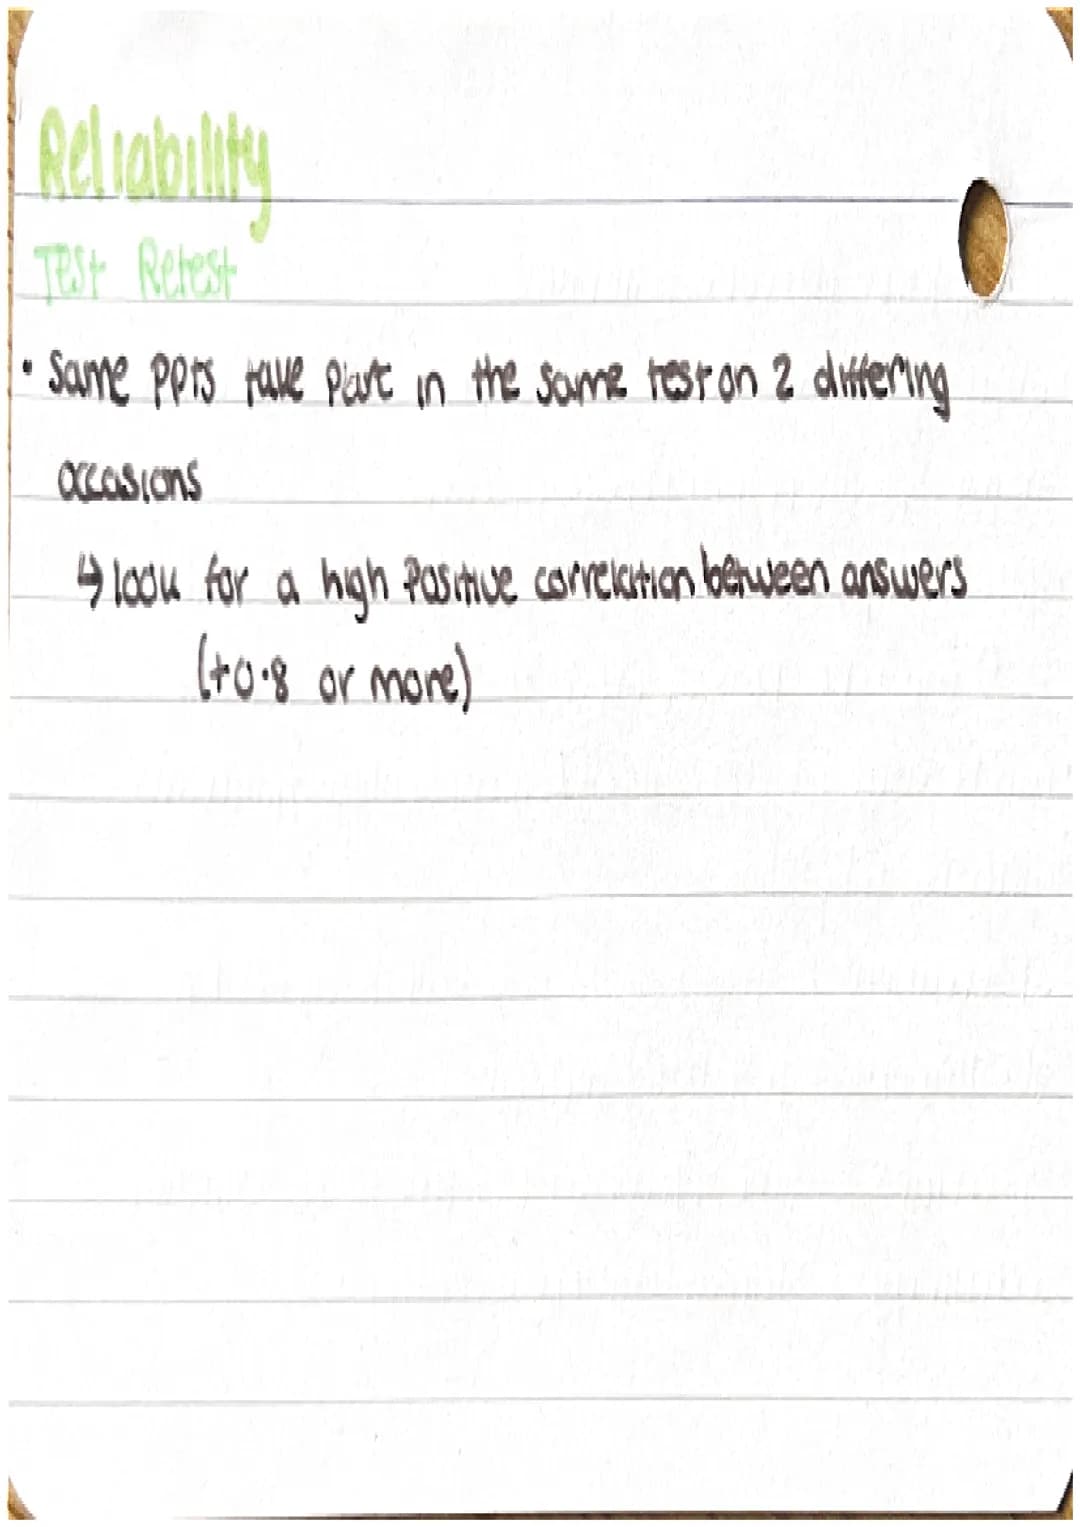 Reliability
Test Retest
• Same ppts take part in the same test on 2 differing
occasions
↳ look for a high positive correlation between answers
(+0.8 or more)